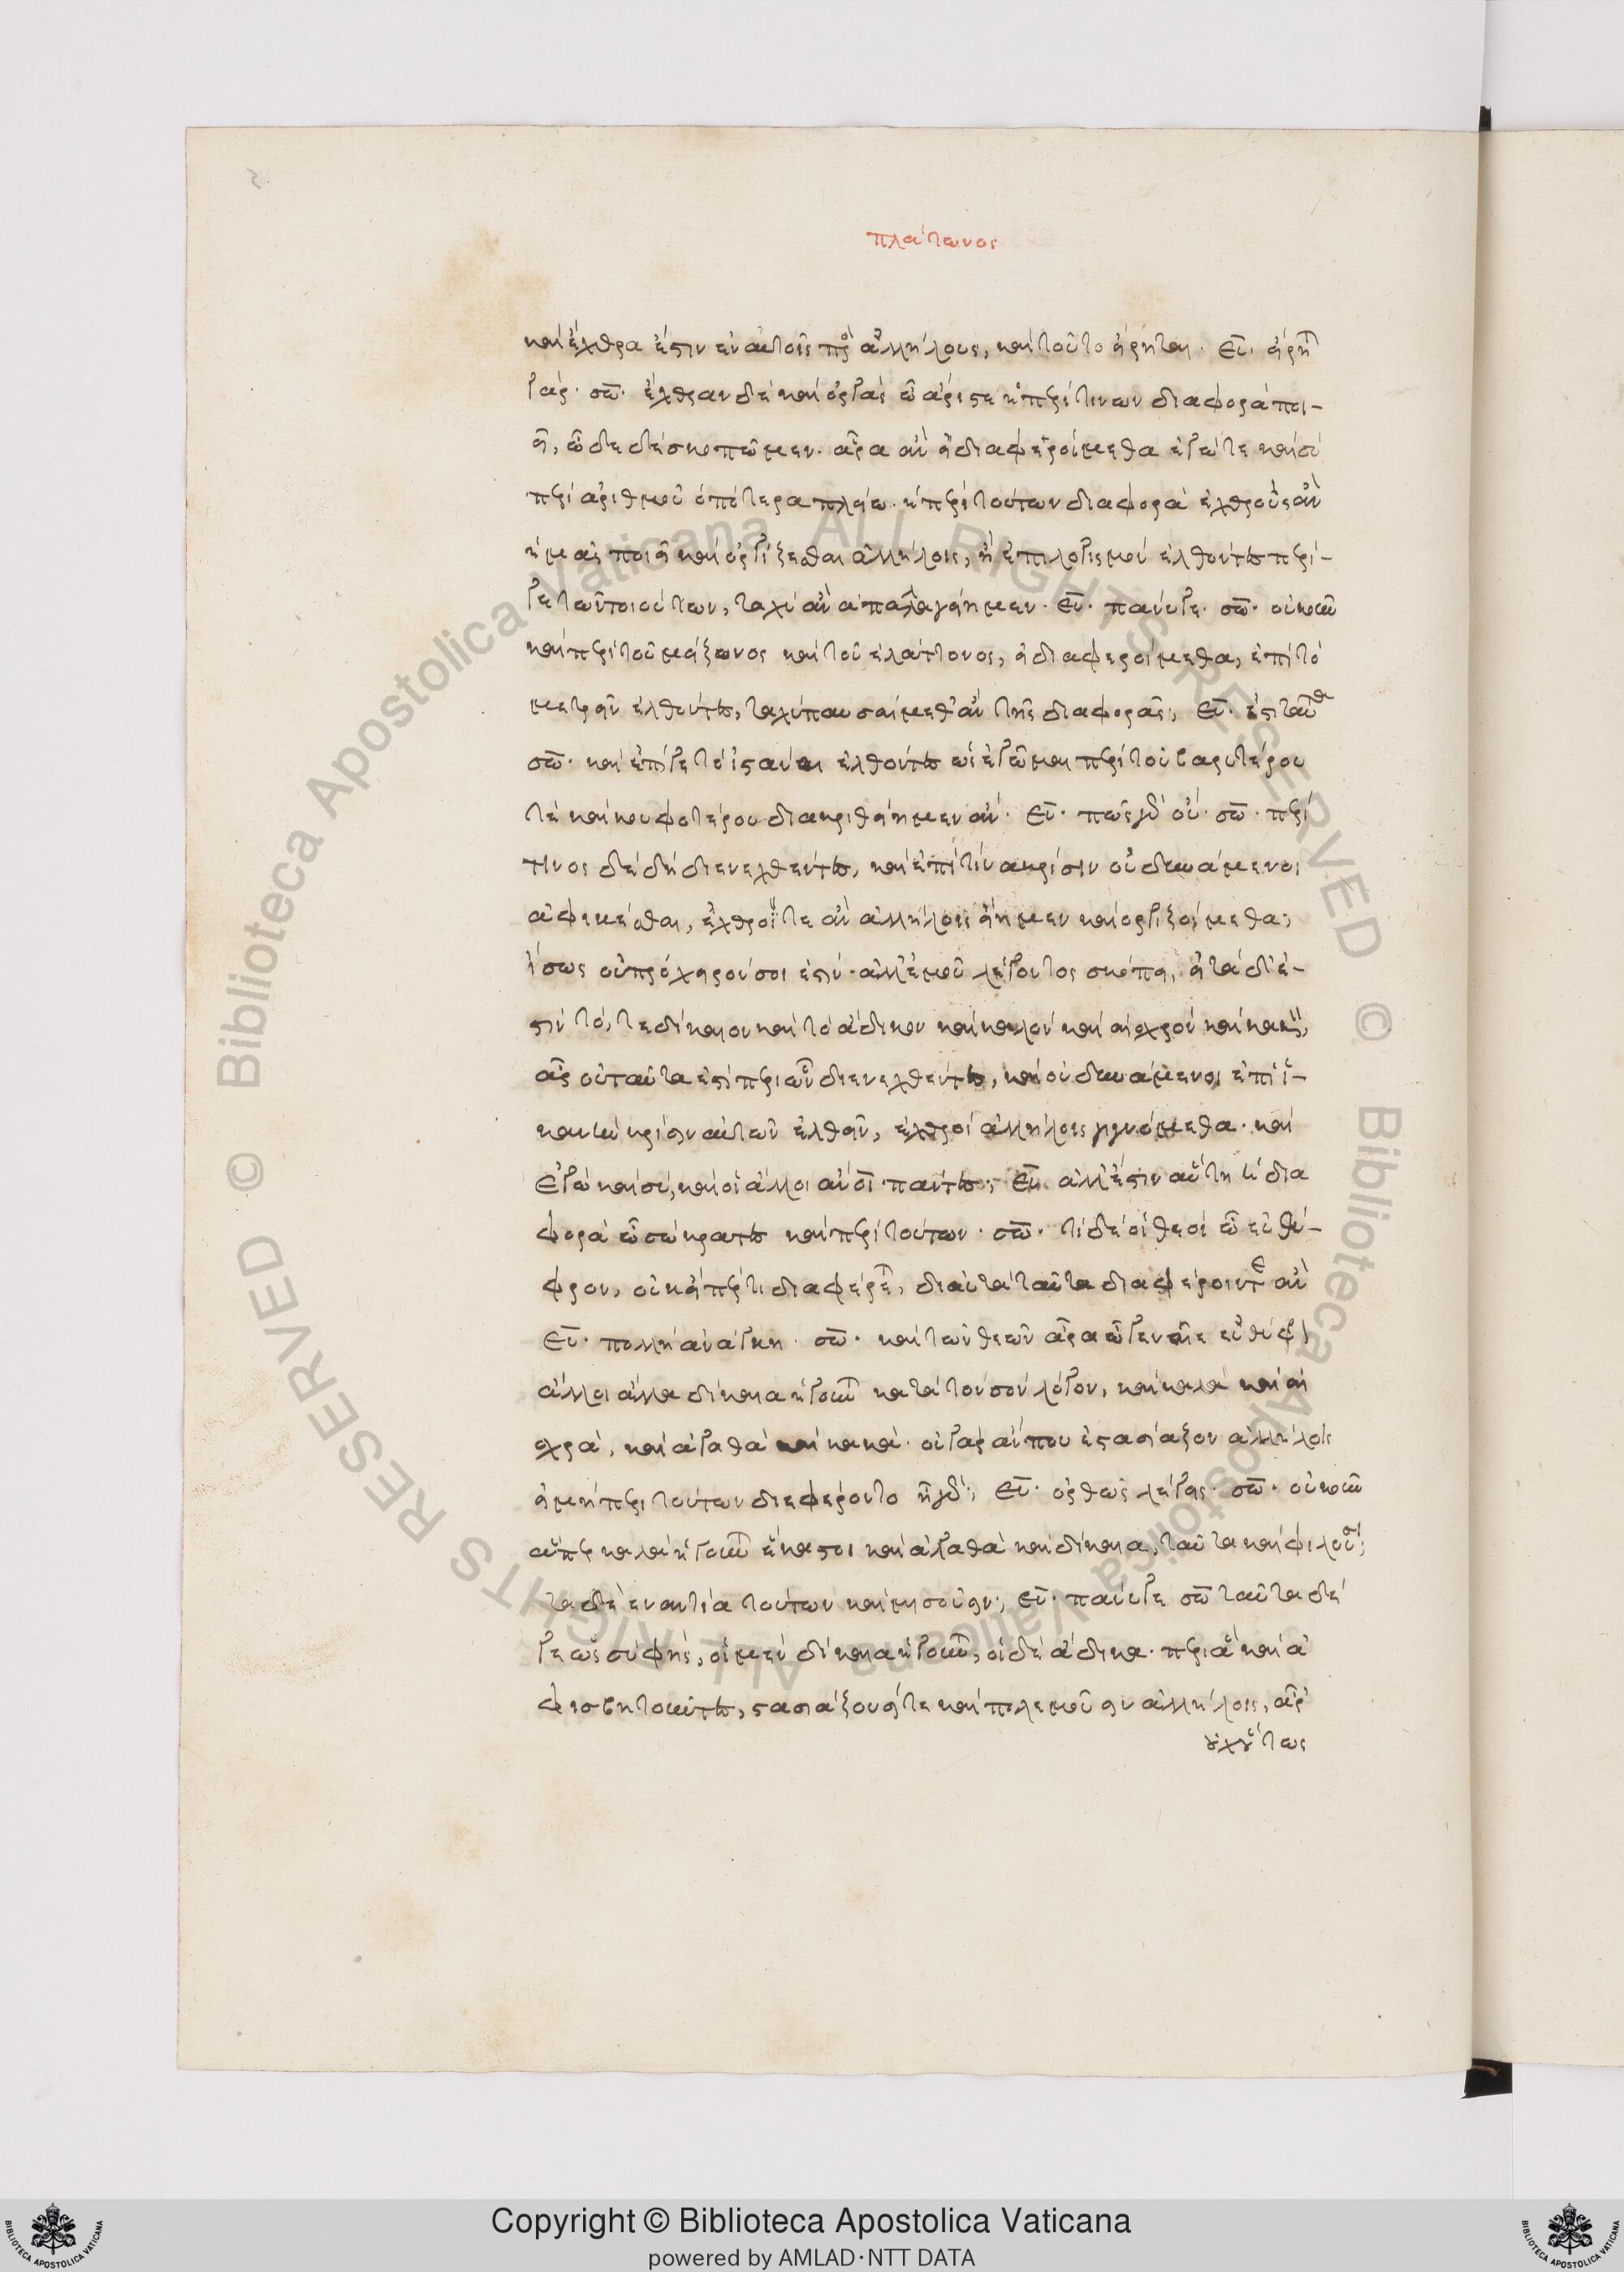 πλάτωνος
καὶ ἔχθρα ἐστὶν ἐν αὐτοῖς πρὸς ἀλλήλους, καὶ τοῦτο εἴρηται. ΕΥ. εἴρηται
γάρ. σω. ἔχθραν δὲ καὶ ὀργὰς ὦ ἄριστε ἡ περὶ τίνων διαφορὰ ποι-
εῖ, ὧδε δὲ σκοπῶμεν. ἆρα ἂν εἰ διαφεροίμεθα ἐγώ τε καὶ σὺ
περὶ ἀριθμοῦ ὁπότερα πλείω. ἡ περὶ τούτων διαφορὰ ἐχθροὺς ἂν
ἡμᾶς ποιεῖ καὶ ὀργίζεσθαι ἀλλήλοις, ἢ ἐπὶ λογισμὸν ἐλθόντες περί-
γε τῶν τοιούτων, ταχὺ ἂν ἀπαλλαγείημεν. ΕΥ. πάνυ γε. σω. οὐκοῦν
καὶ περὶ τοῦ μείζωνος καὶ τοῦ ἐλάττονος, εἰ διαφεροίμεθα, ἐπὶ τὸ
μετρεῖν ἐλθόντες, ταχὺ παυσαίμεθ' ἂν τῆς διαφορᾶς; ΕΥ. ἔστι ταῦτα
σω. καὶ ἐπί γε τὸ ἱστάναι ἐλθόντες ὡς ἐγῶμαι περὶ τοῦ βαρυτέρου
τὲ καὶ κουφοτέρου διακριθείημεν ἄν. ΕΥ. πῶς γὰρ οὔ. σω. περὶ
τίνος δὲ δὴ διενεχθέντες, καὶ ἐπὶ τίνα κρίσιν οὐ δυνάμενοι
ἀφικέσθαι, ἐχθροί τε ἂν ἀλλήλοις εἴημεν καὶ ὀργιζοίμεθα;
ἴσως οὐ πρόχειρον σοι ἐστίν. ἀλλ' ἐμοῦ λέγοντος σκόπει, εἰ τὰ δ' ἐ-
στὶν τό, τε δίκαιον καὶ τὸ ἄδικον καὶ καλὸν καὶ αἰσχρὸν καὶ κακόν,
ἆρ' οὐ ταῦτα ἐστὶ περὶ ὧν διενεχθέντες, καὶ οὐ δυνάμενοι ἐπὶ ἱ-
κανὴν κρίσιν αὐτῶν ἐλθεῖν, ἐχθροὶ ἀλλήλοις γιγνόμεθα. καὶ
ἐγὼ καὶ σύ, καὶ οἱ ἄλλοι ἄνοι πάντες; ΕΥ. ἀλλ' ἔστιν αὕτη ἡ δια
φορὰ ὦ σώκρατες καὶ περὶ τούτων. σω. τί δὲ οἱ θεοὶ ὦ εὐθύ-
φρον, οὐκ εἴπερ τι διαφέρεται, διὰ ταῦτα διαφέροιντ' ἄν
ΕΥ. πολλὴ ἀνάγκη. σω. καὶ τῶν θεῶν ἄρα ὦ γενναῖε εὐθύφρ
ἄλλοι ἄλλα δίκαια ἡγοῦνται κατὰ τὸν σὸν λόγον, καὶ καλὰ καὶ αἰ
σχρά, καὶ ἀγαθὰ καὶ κακά. οὐ γὰρ ἄν που ἐστασίαζον ἀλλήλοις
εἰ μὴ περὶ τούτων διεφέροντο ἦ γάρ; ΕΥ. ὀρθῶς λέγεις. σω. οὐκοῦν
ἅπερ καλὰ ἡγοῦνται ἕκαστοι καὶ ἀγαθὰ καὶ δίκαια, ταῦτα καὶ φιλοῦσι;
τὰ δὲ ἐναντία τούτων καὶ μισοῦσιν; ΕΥ. πάνυ γε σω ταῦτα δέ
γε ὡς σὺ φής, οἱ μὲν δίκαια ἡγοῦνται, οἱ δὲ ἄδικα. περὶ ἃ καὶ ἀ
φισβητοῦντες, στασιάζουσί τε καὶ πολεμοῦσιν ἀλλήλοις, ἆρ'
οὐχ οὕτως
Copyright © Biblioteca Apostolica Vaticana
powered by AMLAD·NTT DATA
© Biblioteca Apostolica Vaticana ALL RIGHTS RESERVED © Biblioteca Apostolica Vaticana ALL RIGHTS RESERVED
BIBLIOTECA APOSTOLICA VATICANA
BIBLIOTECA APOSTOLICA VATICANA